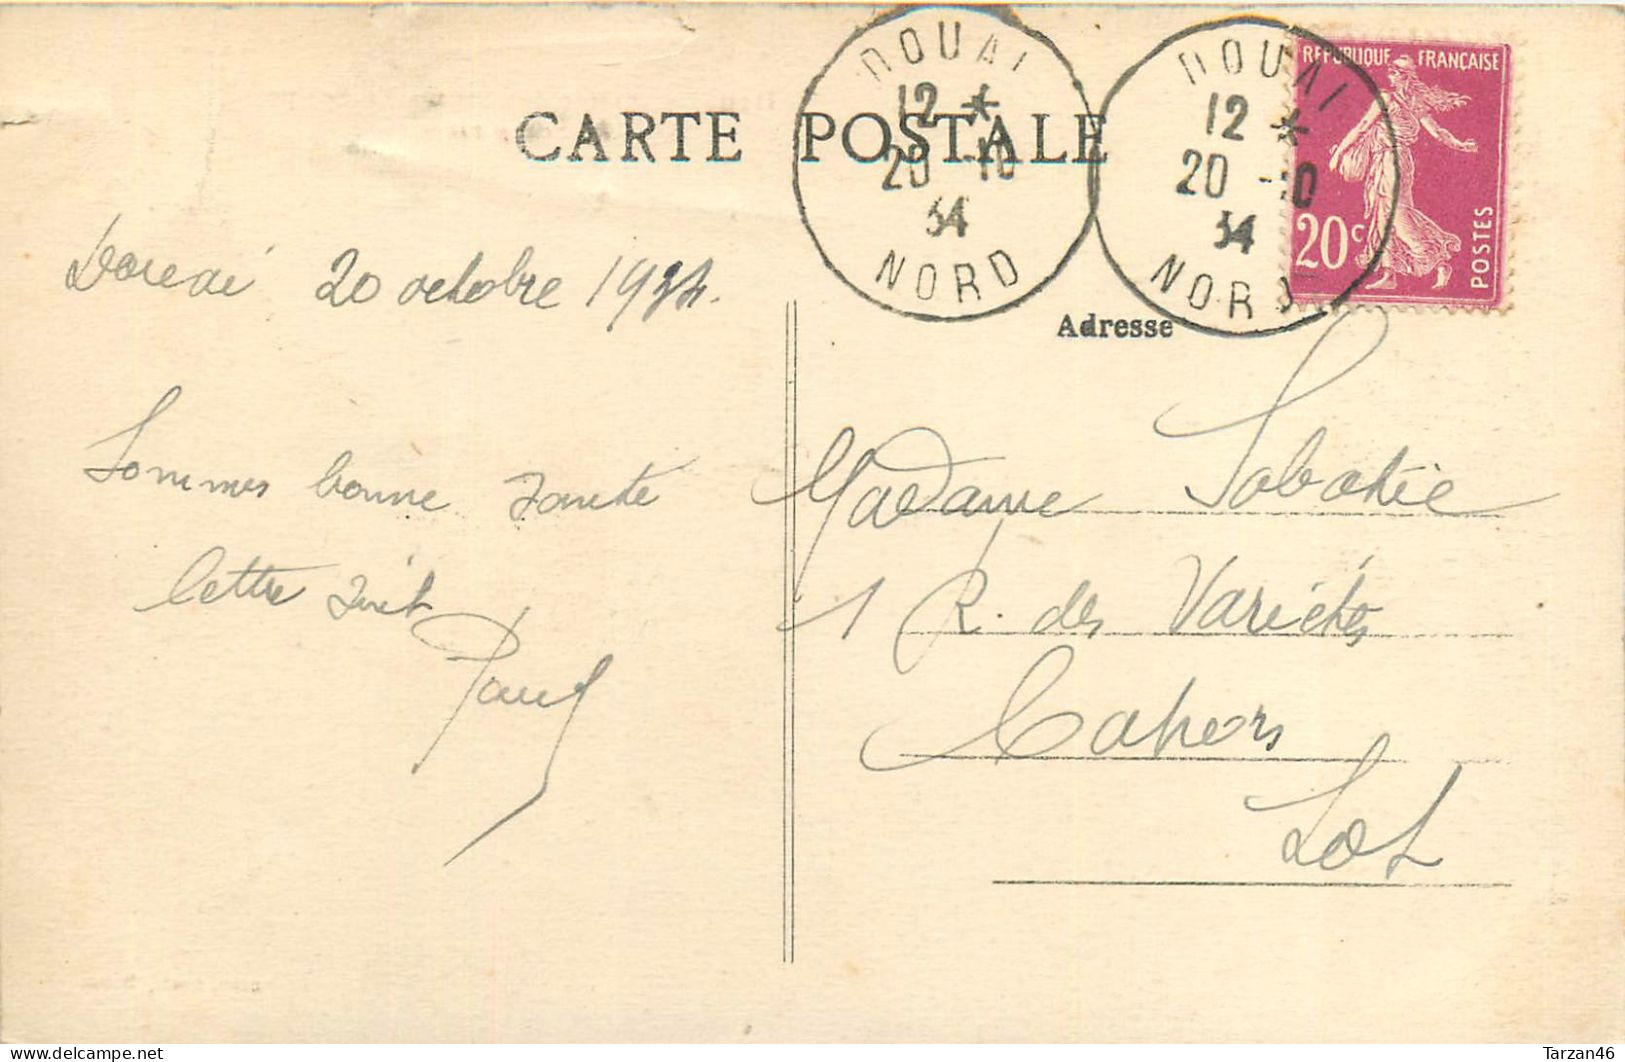 CARTE POSTALE
DOUAI
12 *
20 -10
34
NORD
DOUAI
12 *
20 -10
34
NORD
REPUBLIQUE FRANÇAISE
20c
POSTES
Douai 20 octobre 1934.
Sommes bonne santé
lettre suit
Paul
Adresse
Madame Sabatié
1 R. des Variétés
Cahors
Lot
Tarzan46